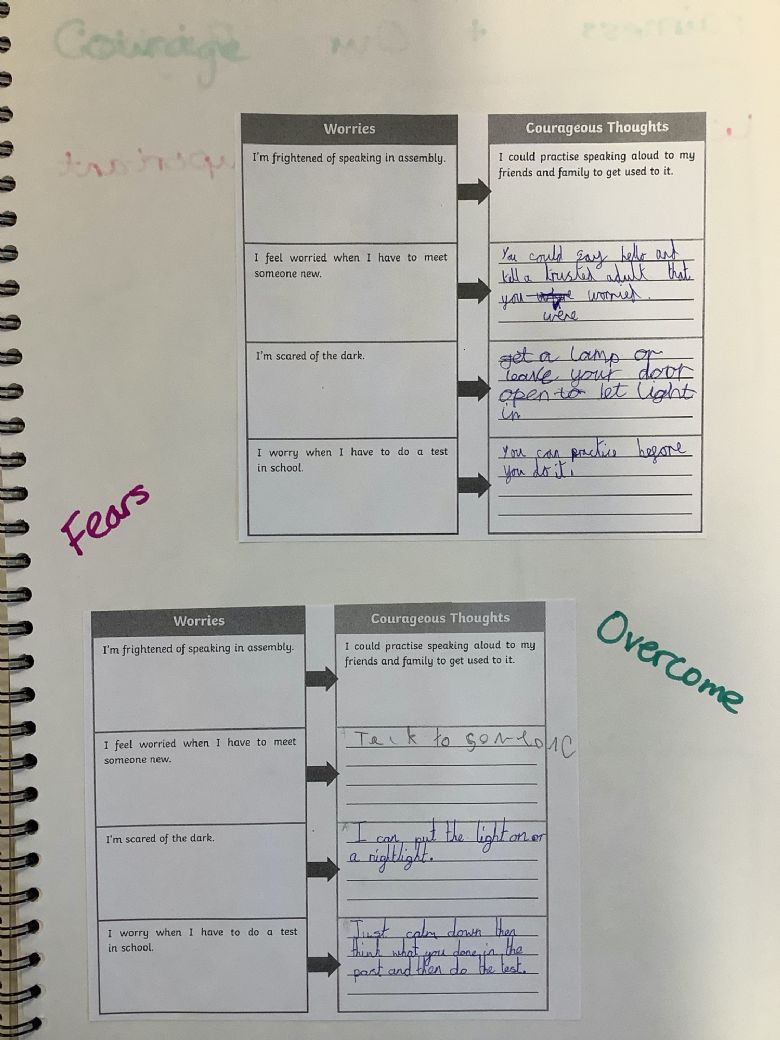 Courage
Our
+
important
Worries
Courageous Thoughts
I'm frightened of speaking in assembly.
I could practise speaking aloud to my
friends and family to get used to it.
I feel worried when I have to meet
someone new.
You could say hello and
tell a trusted adult that
you worried.
were
I'm scared of the dark.
get a lamp or
leave your door
open to let light
in
I worry when I have to do a test
in school.
You can practice before
you do it.
Fears
Worries
Courageous Thoughts
I'm frightened of speaking in assembly.
I could practise speaking aloud to my
friends and family to get used to it.
Overcome
I feel worried when I have to meet
someone new.
Talk to someone
I'm scared of the dark.
I can put the light on or
a nightlight.
I worry when I have to do a test
in school.
Just calm down then
think what you done in the
past and then do the test.